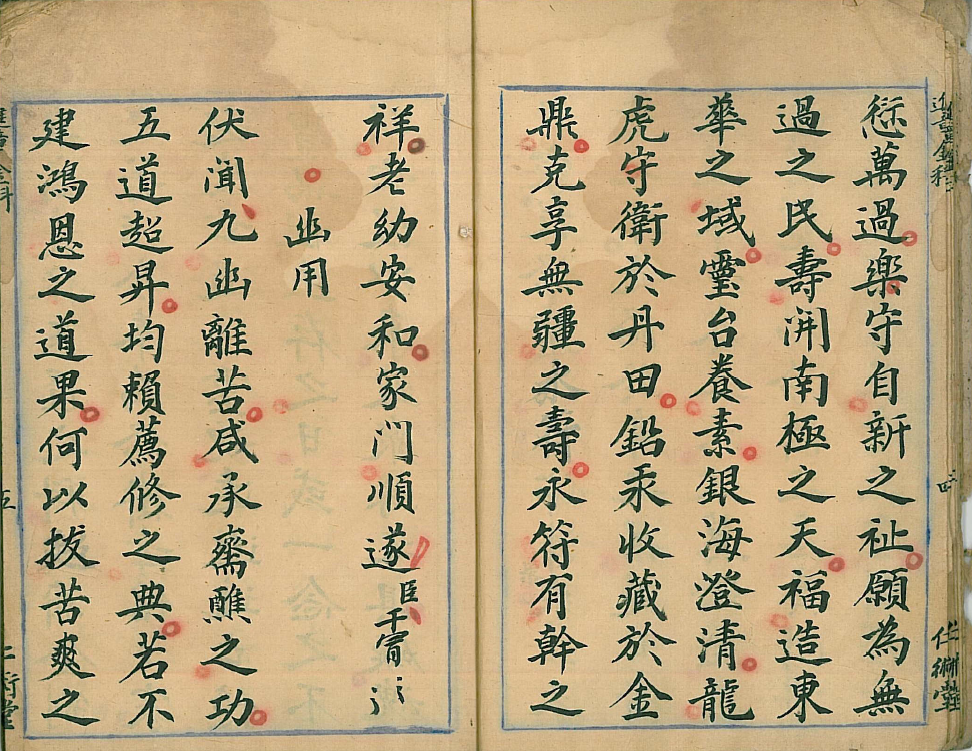 愆萬過樂守自新之祉願為無
過之民壽開南極之天福造東
華之域靈台養素銀海澄清龍
虎守衛於丹田鉛汞收藏於金
鼎克享無疆之壽永符有幹之
祥老幼安和家門順遂臣干冒
幽用
伏聞九幽離苦咸承齋醮之功
五道超昇均賴薦修之典若不
建鴻恩之道果何以拔苦爽之